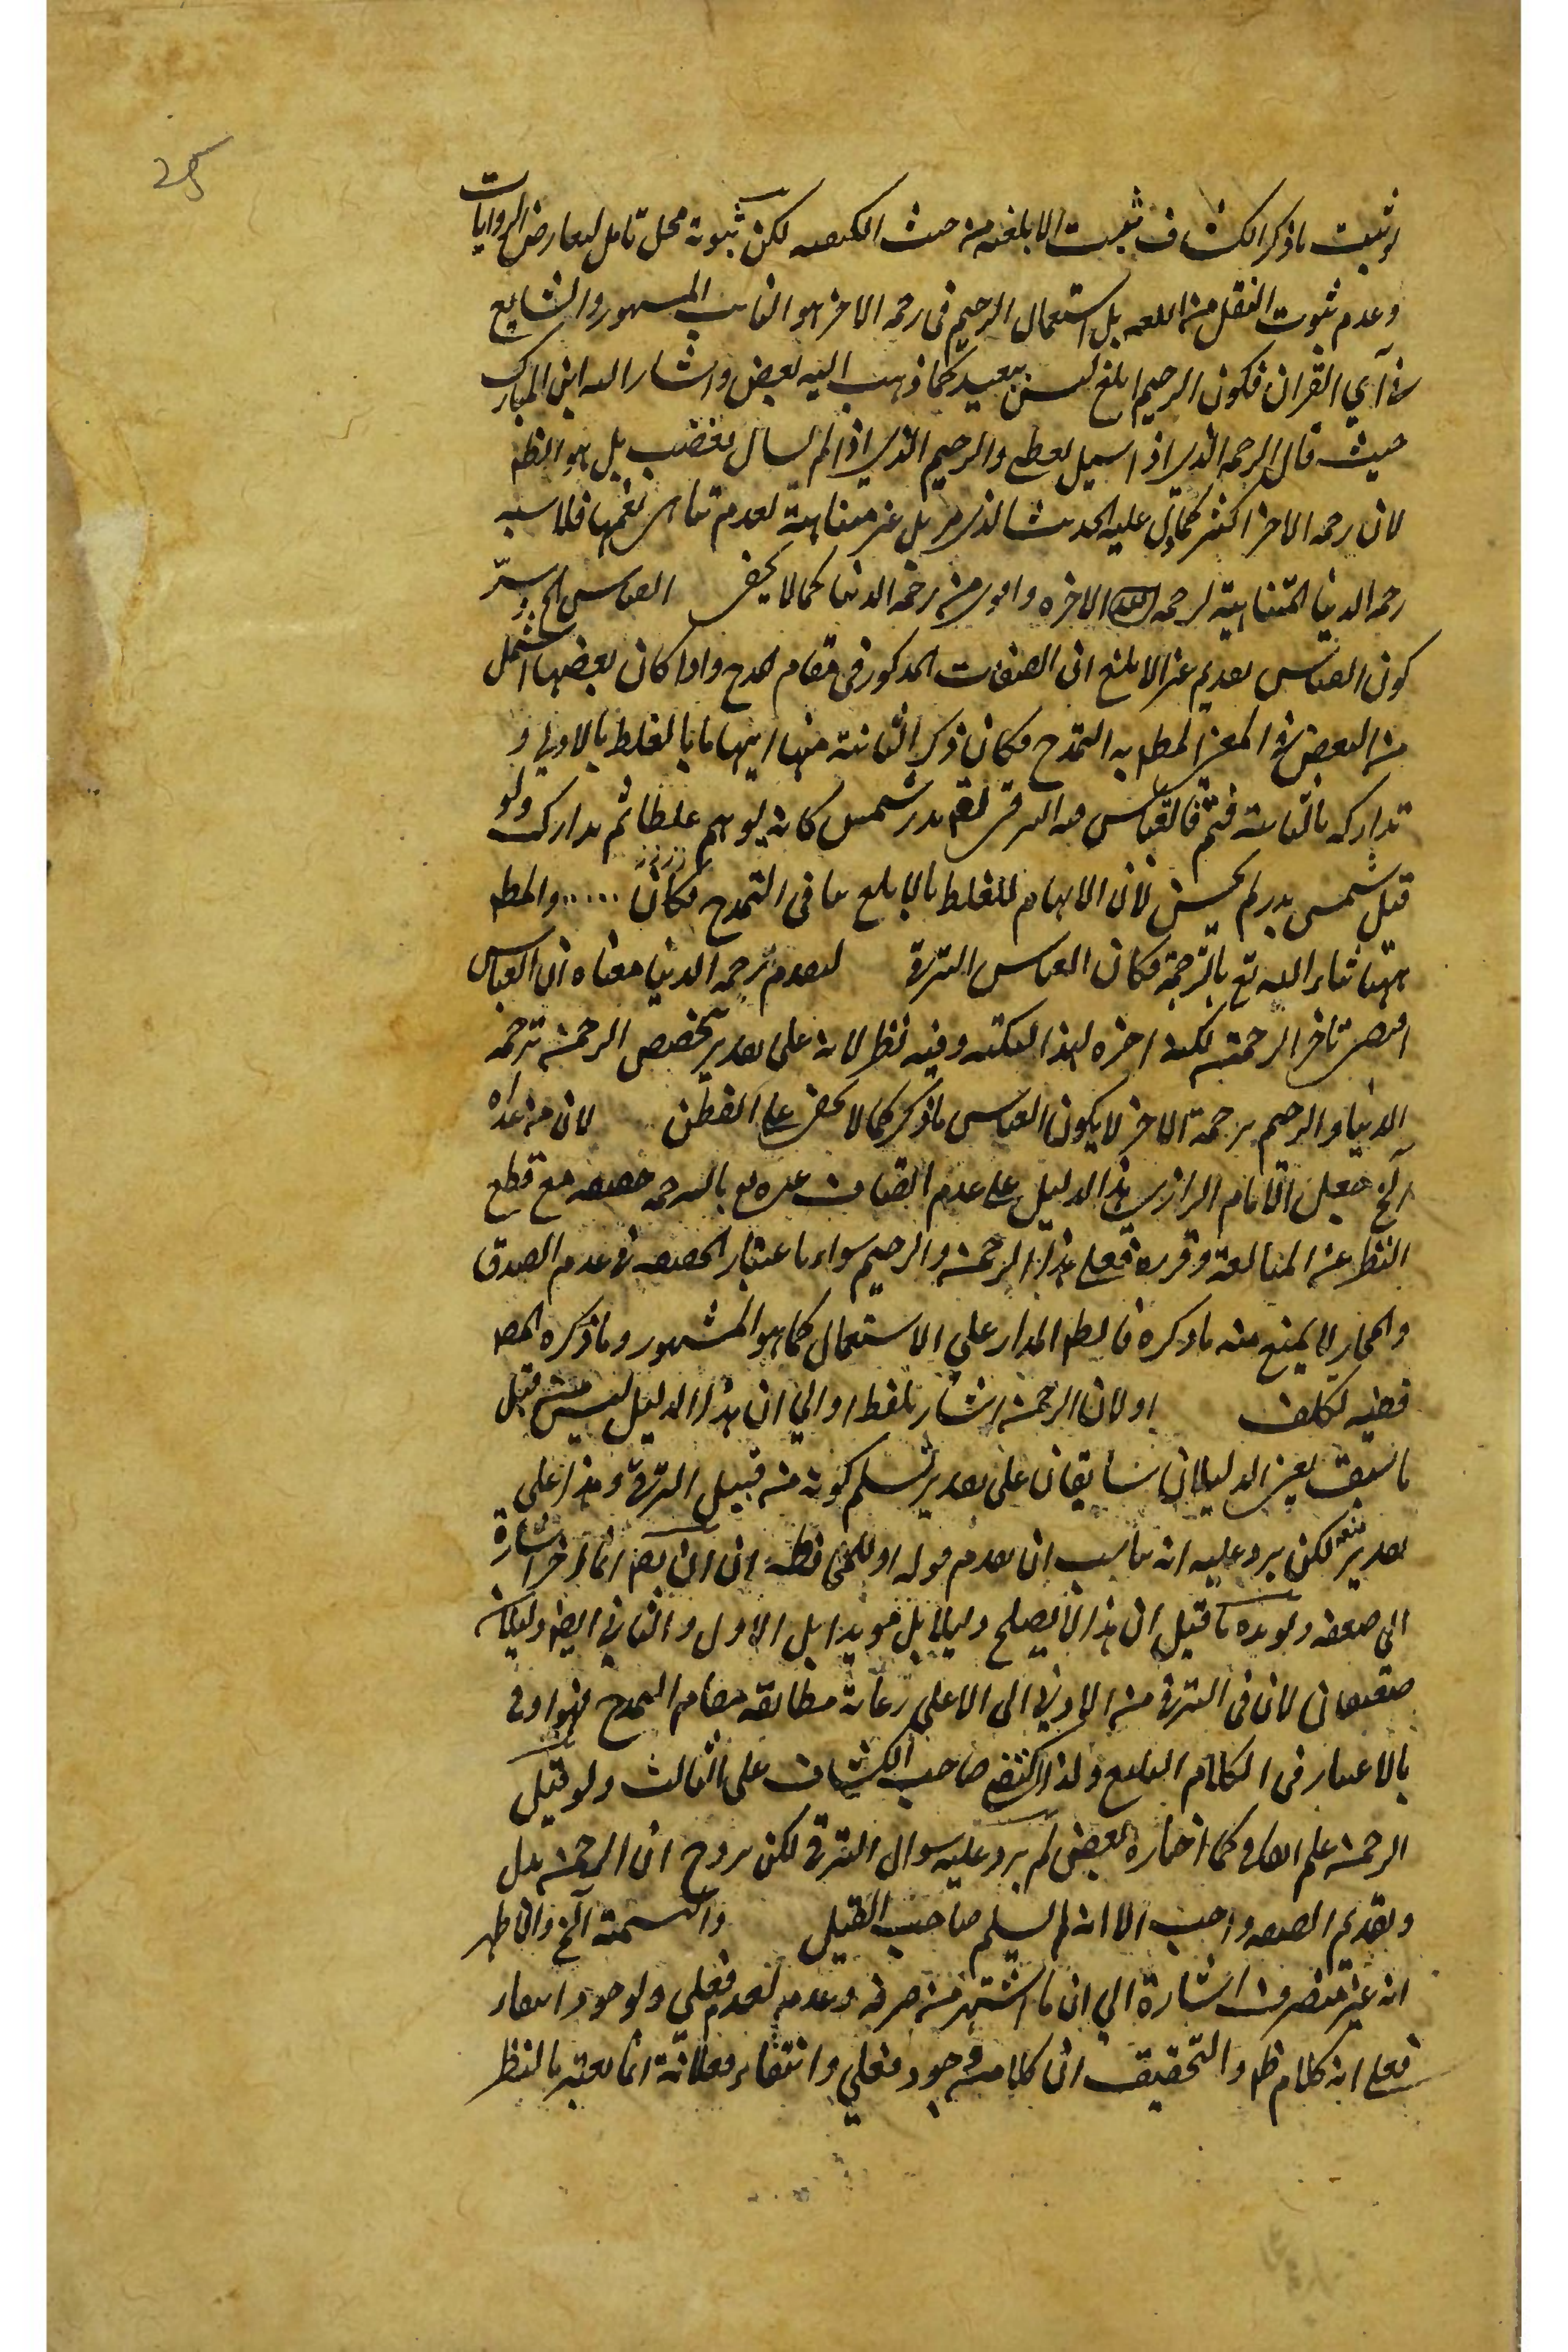 25
لو ثبت ما ذكر الكشاف ثبت الابلغية من حيث الكيفية لكن ثبوته محل تامل لتعارض الروايات
وعدم ثبوت النقل من اللغة بل استعمال الرحيم في رحمة الاخرة هو الثابت المشهور والشايع
في آي القران فكون الرحيم ابلغ ليس ببعيد كما ذهب اليه بعض واشار اليه ابن المبارك
حيث قال الرحمن الذي اذا سئل يعطي والرحيم الذي اذا لم يسال يغضب بل هو الظ
لان رحمة الاخرة اكثر كما دل عليه الحديث الذي مر بل غير متناهية لعدم تناهي نعمها فلا نسبة
رحمة الدنيا المتناهية لرحمة الاخره من رحمة الدنيا كما لا يخفى القياس الخ وسر
كون القياس تقديم غير الابلغ ان الصفات المذكور في مقام المدح واذا كان بعضها اشمل
من البعض في المعنى المط به التمدح فكان ذكر الثانية منها ايهاما بالغلط بالاولى و
تداركه بالثانية فثم فالقياس فيه الترقي بدر شمس كانه يوهم غلطا ثم تدارك ولو
قيل شمس بدر لم يحسن لان الايهام للغلط بالابلغ في التمدح فكان ..... والمط
ههنا ثناء الله تع بالرحمة فكان القياس الترقي لتقدم رحمة الدنيا معناه ان القياس
اقتضى تاخر الرحمن لكنه اخره لهذا النكتة وفيه نظر لانه على تقدير تخصيص الرحمن برحمة
الدنيا والرحيم برحمة الاخرة لا يكون القياس ما ذكر كما لا يخفى على الفطن لان من عداه
الخ جعل الامام الرازي هذا الدليل على عدم اتصاف غيره تع بالرحمة حقيقة مع قطع
النظر عن المبالغة وقرره فعلى هذا الرحمن والرحيم سواء باعتبار الحقيقة في عدم الصدق
والمجاز لا يمنع منه ما ذكره فالظ المدار على الاستعمال كما هو المشهور وما ذكره المص
ففيه تكلف او لان الرحمن اشار بلفظ او الى ان هذا الدليل ليس من قبيل
ما سبق يعني الدليلان سابقان على تقدير تسليم كونه من قبيل الترقي وهذا على
تقدير منعه لكن يرد عليه انه يناسب ان يقدم قوله او للمحافظة انما اخر اشارة
الى ضعفه ويؤيده ما قيل ان هذا لا يصلح دليلا بل مويدا بل الاول والثاني ايض دليلان
ضعيفان لان في الترقي من الادنى الى الاعلى رعاية مطابقة مقام المدح فهو اولى
بالاعتبار في الكلام البليغ ولذا اكتفى صاحب الكشاف على الثالث ولو قيل
الرحمن علم كما اختاره بعض لم يرد عليه سوال الترقي لكن يرد ح ان الرحمن بدل
وتقديم الصفة واجب الا انه لم يسلم صاحب القيل والتسمية الخ والاظهر
انه غير منصرف اشارة الى ان ما اشتهر من صرفه وعدمه لعدم فعلى ولوجود انتفاء
فعلى انه كلام ظ والتحقيق ان كلا من وجود فعلى وانتفاء فعلانة انما يعتبر بالنظر